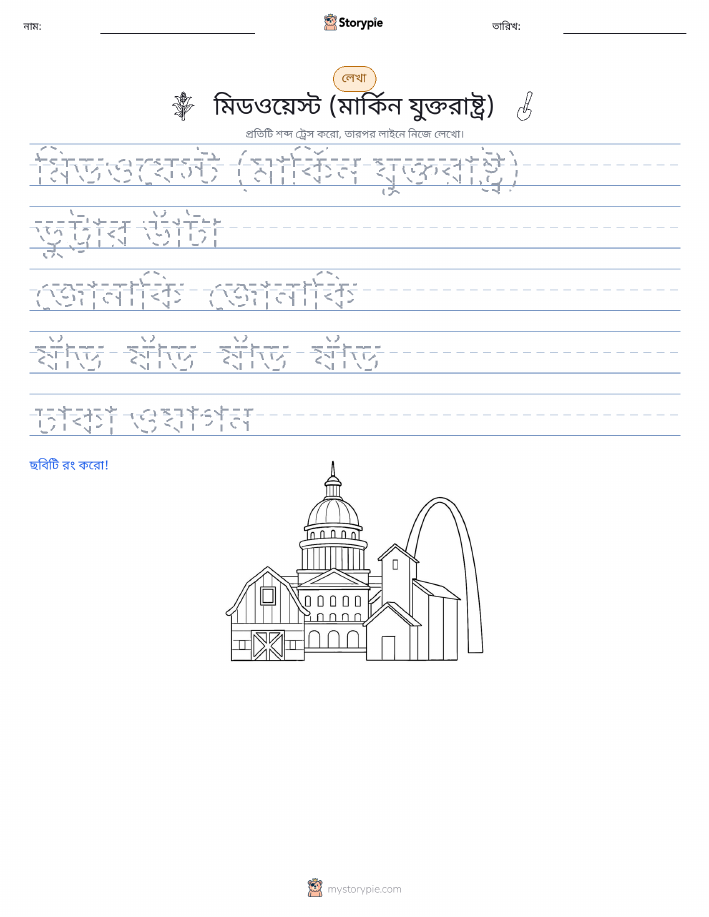 নাম:
Storypie
তারিখ:
লেখা
মিডওয়েস্ট (মার্কিন যুক্তরাষ্ট্র)
প্রতিটি শব্দ ট্রেস করো, তারপর লাইনে নিজে লেখো।
মিডওয়েস্ট (মার্কিন যুক্তরাষ্ট্র)
ভুট্টার ডাঁটা
জোনাকি জোনাকি
ষাঁড় ষাঁড় ষাঁড় ষাঁড়
ঢাকা ওয়াগন
ছবিটি রং করো!
mystorypie.com